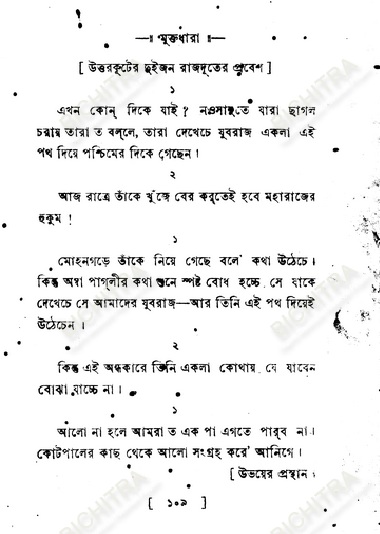 —॥ মুক্তধারা ॥—
[ উত্তরকূটের দুইজন রাজদূতের প্রবেশ ]
১
এখন কোন্ দিকে যাই? নওসানুতে যারা ছাগল
চরায় তারা ত বল্‌লে, তারা দেখেচে যুবরাজ একলা এই
পথ দিয়ে পশ্চিমের দিকে গেছেন।
২
আজ রাত্রে তাঁকে খুঁজে বের কর্‌তেই হবে মহারাজের
হুকুম !
১
মোহনগড়ে তাঁকে নিয়ে গেছে বলে' কথা উঠেচে।
কিন্তু অম্বা পাগ্‌লীর কথা শুনে স্পষ্ট বোধ হচ্চে সে যাকে
দেখেচে সে আমাদের যুবরাজ—আর তিনি এই পথ দিয়েই
উঠেচেন ।
২
কিন্তু এই অন্ধকারে তিনি একলা কোথায় যে যাবেন
বোঝা যাচ্চে না।
১
আলো না হলে আমরা ত এক পা এগতে পার্‌ব না।
কোটপালের কাছ থেকে আলো সংগ্রহ করে' আনিগে।
[ উভয়ের প্রস্থান।
[ ১০৯ ]
BICHITRA